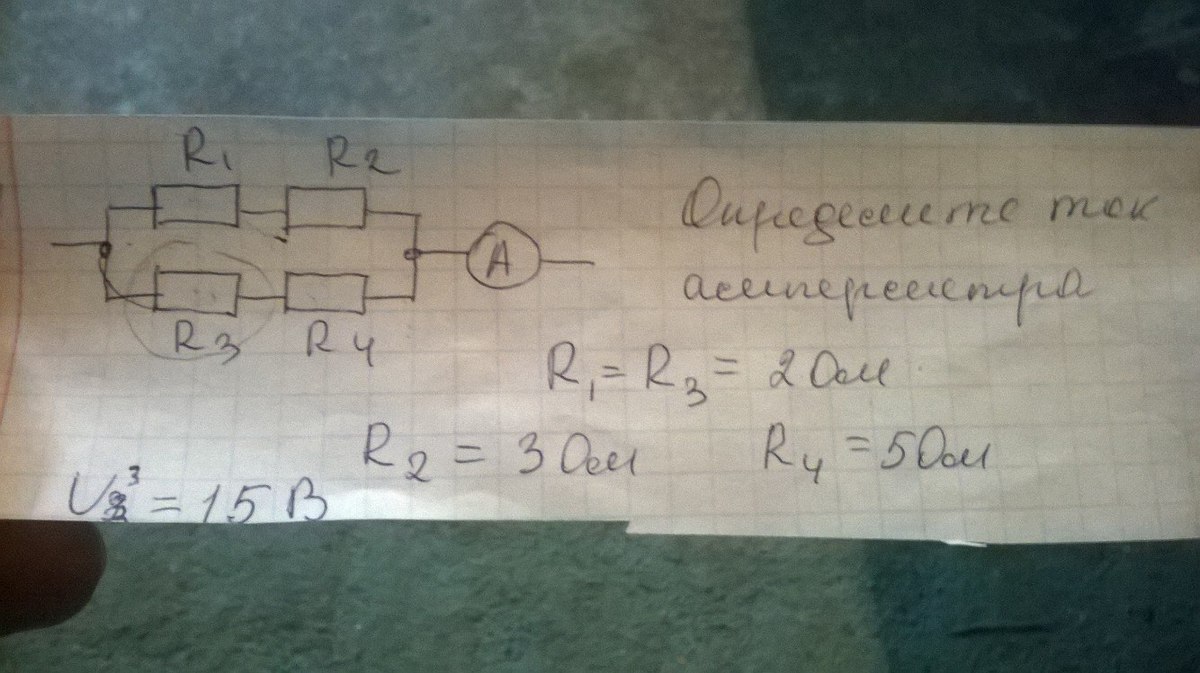 R1 R2
A
R3 R4
Определите ток
амперметра
R1 = R3 = 2 Ом
R2 = 3 Ом R4 = 5 Ом
U3 = 15 В